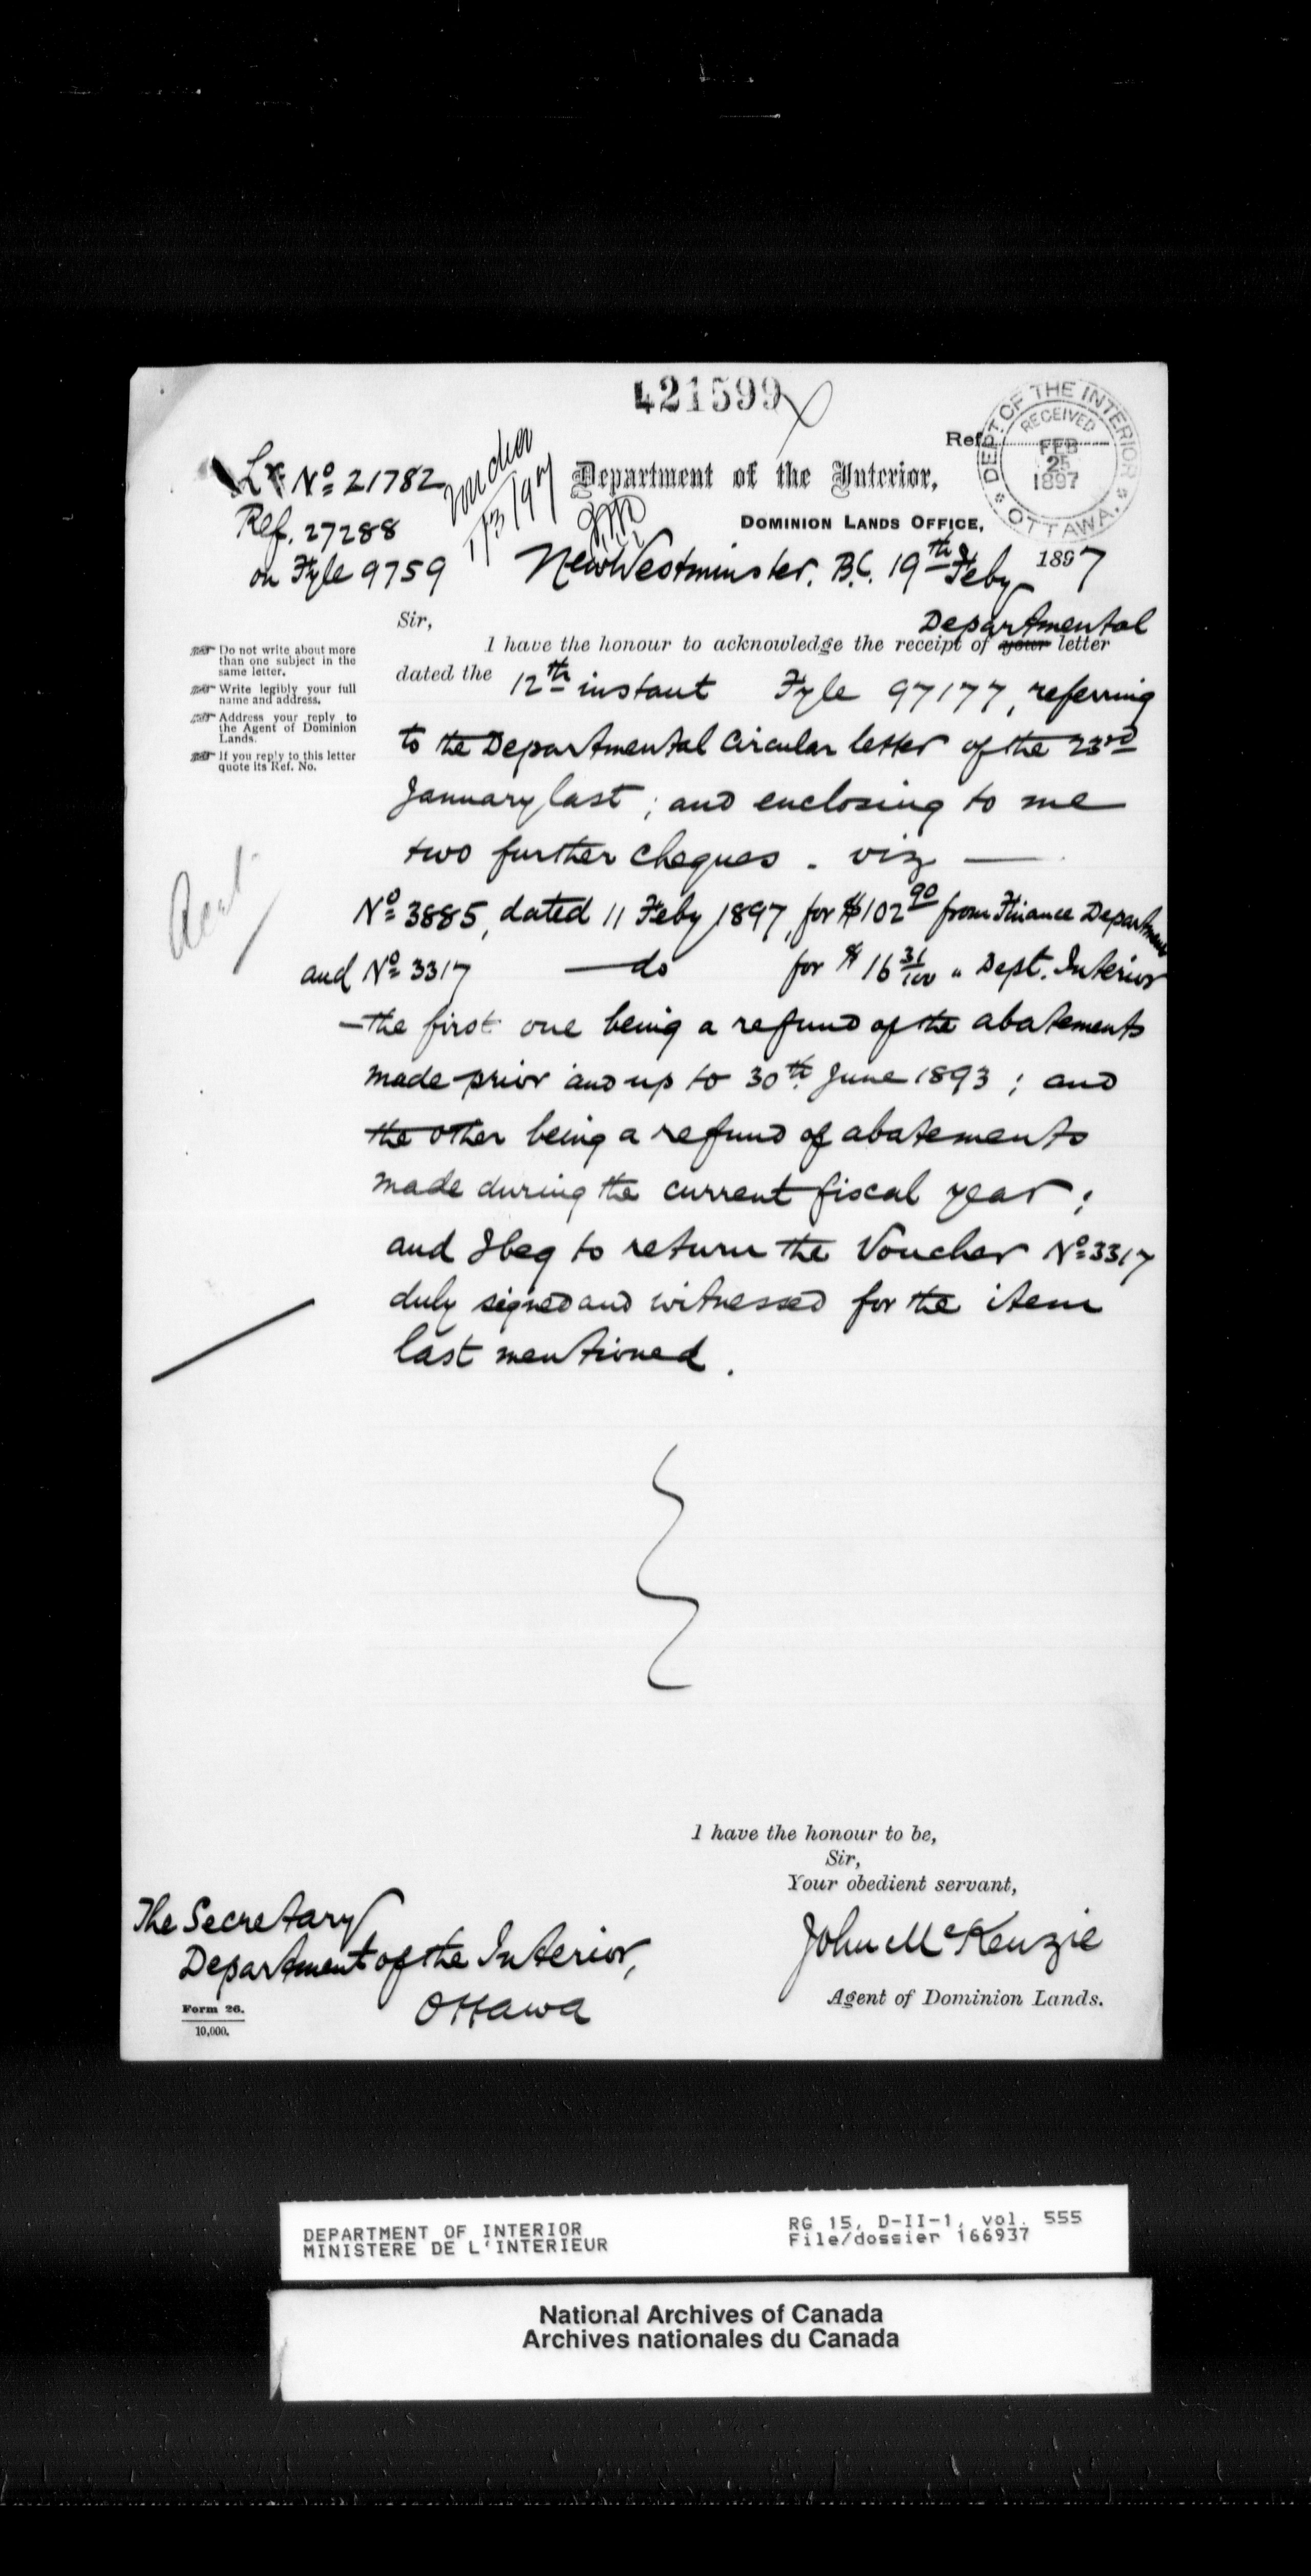 421599
DEPT. OF THE INTERIOR
RECEIVED
FEB
25
1897
OTTAWA.
Refc.
Lr Nº 21782
Ref. 27288
on Fyle 9759
Voucher
1/3/97
Department of the Interior,
DOMINION LANDS OFFICE,
New Westminster, B.C. 19th Feby 1897
Sir,
Departmental
I have the honour to acknowledge the receipt of your letter
dated the 12th instant Fyle 97177, referring
to the Departmental Circular letter of the 23rd
January last; and enclosing to me
two further cheques. viz —
Nº 3885, dated 11 Feby 1897, for $102 90 from Finance Department
and Nº 3317 —do for $16 31/100 " Dept. Interior
—the first one being a refund of the abatements
made prior and up to 30th June 1893; and
the other being a refund of abatements
made during the current fiscal year;
and I beg to return the Voucher Nº 3317
duly signed and witnessed for the item
last mentioned.
Do not write about more
than one subject in the
same letter.
Write legibly your full
name and address.
Address your reply to
the Agent of Dominion
Lands.
If you reply to this letter
quote its Ref. No.
Acct.
I have the honour to be,
Sir,
Your obedient servant,
John McKenzie
Agent of Dominion Lands.
The Secretary
Department of the Interior,
Ottawa
Form 26.
10,000.
DEPARTMENT OF INTERIOR
MINISTERE DE L'INTERIEUR
RG 15, D-II-1, vol. 555
File/dossier 166937
National Archives of Canada
Archives nationales du Canada